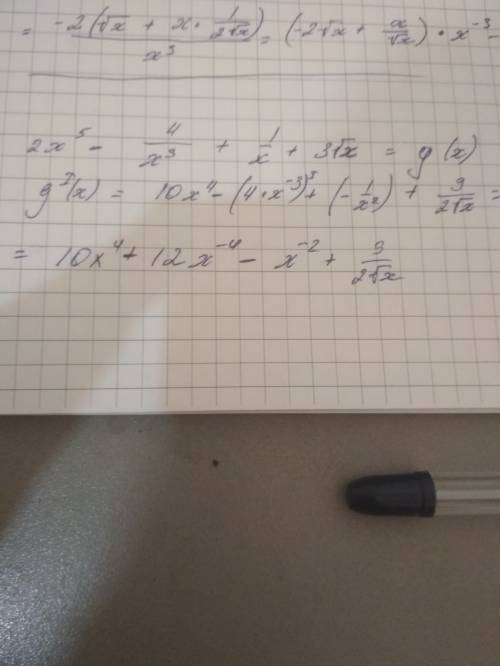 = -2(√x + x · 1/(2√x)) / x³ = (-2√x + x/√x) · x⁻³ -
2x⁵ - 4/x³ + 1/x + 3√x = g(x)
g'(x) = 10x⁴ - (4·x⁻³)' + (-1/x²) + 3/(2√x) =
= 10x⁴ + 12x⁻⁴ - x⁻² + 3/(2√x)